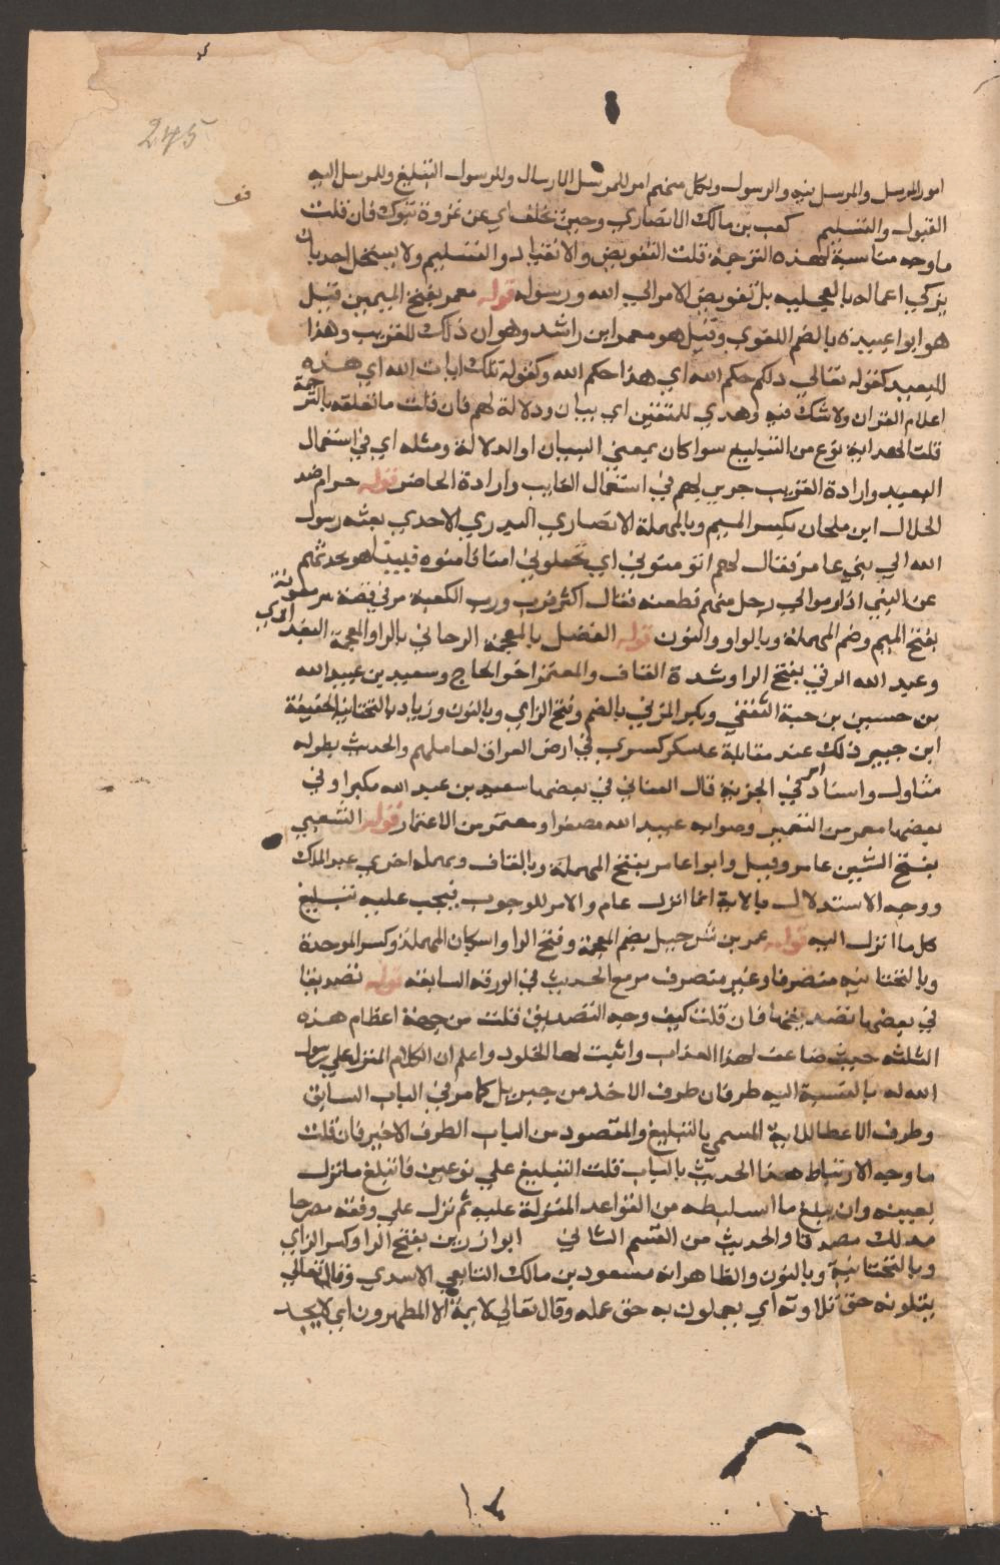 245
امور المرسل والمرسل اليه والرسول ولكل منهم امر للمرسل الارسال وللرسول التبليغ وللمرسل اليه
القبول والتسليم كعب بن مالك الانصاري وحين تخلف اي عن غزوة تبوك فان قلت
ما وجه مناسبة لهذه الترجمة قلت التفويض والانقياد والتسليم ولا يستحل احد بان
يزكي اعماله بالعجلة بل تفويض الامر الى الله ورسوله قوله معمر بفتح الميمين قيل
هو ابو عبيدة بالضم اللغوي وقيل هو معمر ابن راشد وهو ان ذلك للقريب وهذا
للبعيد كقوله تعالي ذلكم حكم الله اي هذا حكم الله وكقوله تلك ايات الله اي هذه
اعلام القران ولا شك فيه وهدي للمتقين اي بيان ودلالة لهم فان قلت ما تعلقه بالترجمة
قلت الهداية نوع من التبليغ سوا كان بمعني البيان او الدلالة ومثله اي في استعمال
البعيد وارادة القريب جرين بهم في استعمال الغايب وارادة الحاضر قوله حرام ضد
الحلال ابن ملحان بكسر الميم وبالمهملة الانصاري البدري الاحدي بعثه رسول
الله الي بني عامر فقال لهم اتومنوني اي تجعلوني امنا فامنوه فبينا هو يحدثهم
عن النبي اذ اوموا الي رجل منهم فطعنه فقال اكثر فزت ورب الكعبة مر في قصة بير معونة
بفتح الميم وضم المهملة وبالواو والنون قوله الفضل بالمعجمة الرخامي بالرا والمعجمة البغدادي
وعبد الله الرقي بفتح الرا وشدة القاف والمعتمر اخو الحاج وسعيد بن عبيد الله
بن حسين بن حية الثقفي وبكر المزني بالضم وفتح الزاي وبالنون وزياد بالتحتانية الخفيفة
ابن جبير ذلك عند مقابلة عسكر كسري في ارض العراق لعاملهم والحديث بطوله
متنا واسنادا مر في الجزية قال الغساني في بعضها سعيد بن عبد الله مكبرا وفي
بعضها معمر من التعمير وصوابه عبيد الله مصغرا ومعتمر من الاعتمار قوله الشعبي
بفتح الشين عامر وقيل وابو عامر بفتح المهملة وبالقاف وبمهملة اخري عبد الملك
ووجه الاستدلال بالاية انما انزل عام والامر للوجوب فيجب عليه تبليغ
كل ما انزل اليه قوله عمر بن شرحبيل بضم المعجمة وفتح الرا واسكان المهملة وكسر الموحدة
وبالتحتانية منصرفا وغير منصرف مر مع الحديث في الورقة السابقة قوله تصديقا
في بعضها تصديقها فان قلت كيف وجه التصديق قلت من جهة اعظام هذه
الثلثة حيث ضاعف لهذا العذاب واثبت لها الخلود واعلم ان الكلام المنزل علي رسول
الله له بالنسبة اليه طرفان طرف الاخذ من جبريل كما مر في الباب السابق
وطرف الاعطا للامة المسمي بالتبليغ والمقصود من الباب الطرف الاخير فان قلت
ما وجه الارتباط هذا الحديث بالباب قلت التبليغ علي نوعين فان تبلغ ما نزل
بعينه وان يبلغ ما استنبطه من القواعد المنزلة عليه ثم نزل علي وفقه مصرحا
مصدقا والحديث من القسم الثاني ابو رزين بفتح الرا وكسر الزاي
وبالتحتانية وبالنون والظاهر انه مسعود بن مالك التابعي الاسدي وقال تعالي
يتلونه حق تلاوته اي يعملون به حق عمله وقال تعالي لا يمسه الا المطهرون اي لا يجد